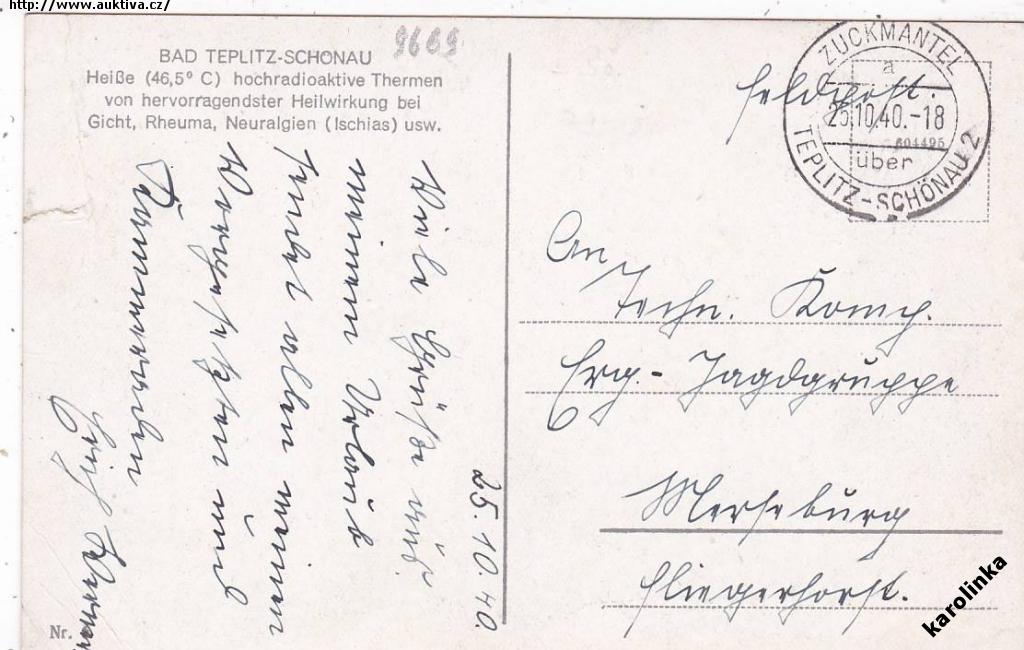 http://www.auktiva.cz/
BAD TEPLITZ-SCHÖNAU
Heiße (46,5° C) hochradioaktive Thermen
von hervorragendster Heilwirkung bei
Gicht, Rheuma, Neuralgien (Ischias) usw.
9669
25.10.40.
Viele Grüße aus
meinem Urlaub
sendet allen meinen
Vorgesetzten und
Kameraden
Nr.
Feldpost.
ZUCKMANTEL
a
25.10.40.-18
604495
über
TEPLITZ-SCHÖNAU 2
An
Techn. Komp.
Erg.- Jagdgruppe
Merseburg
Fliegerhorst.
karolinka